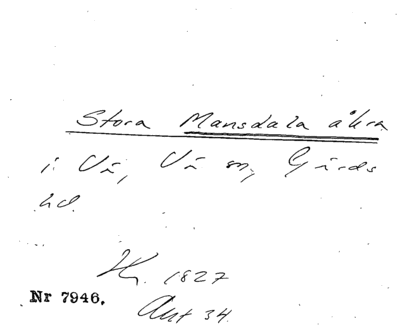 Stora Mansdala åkra
i Vä, Vä sn, Gärds
hd.
1827
Nr 7946.
Akt 34